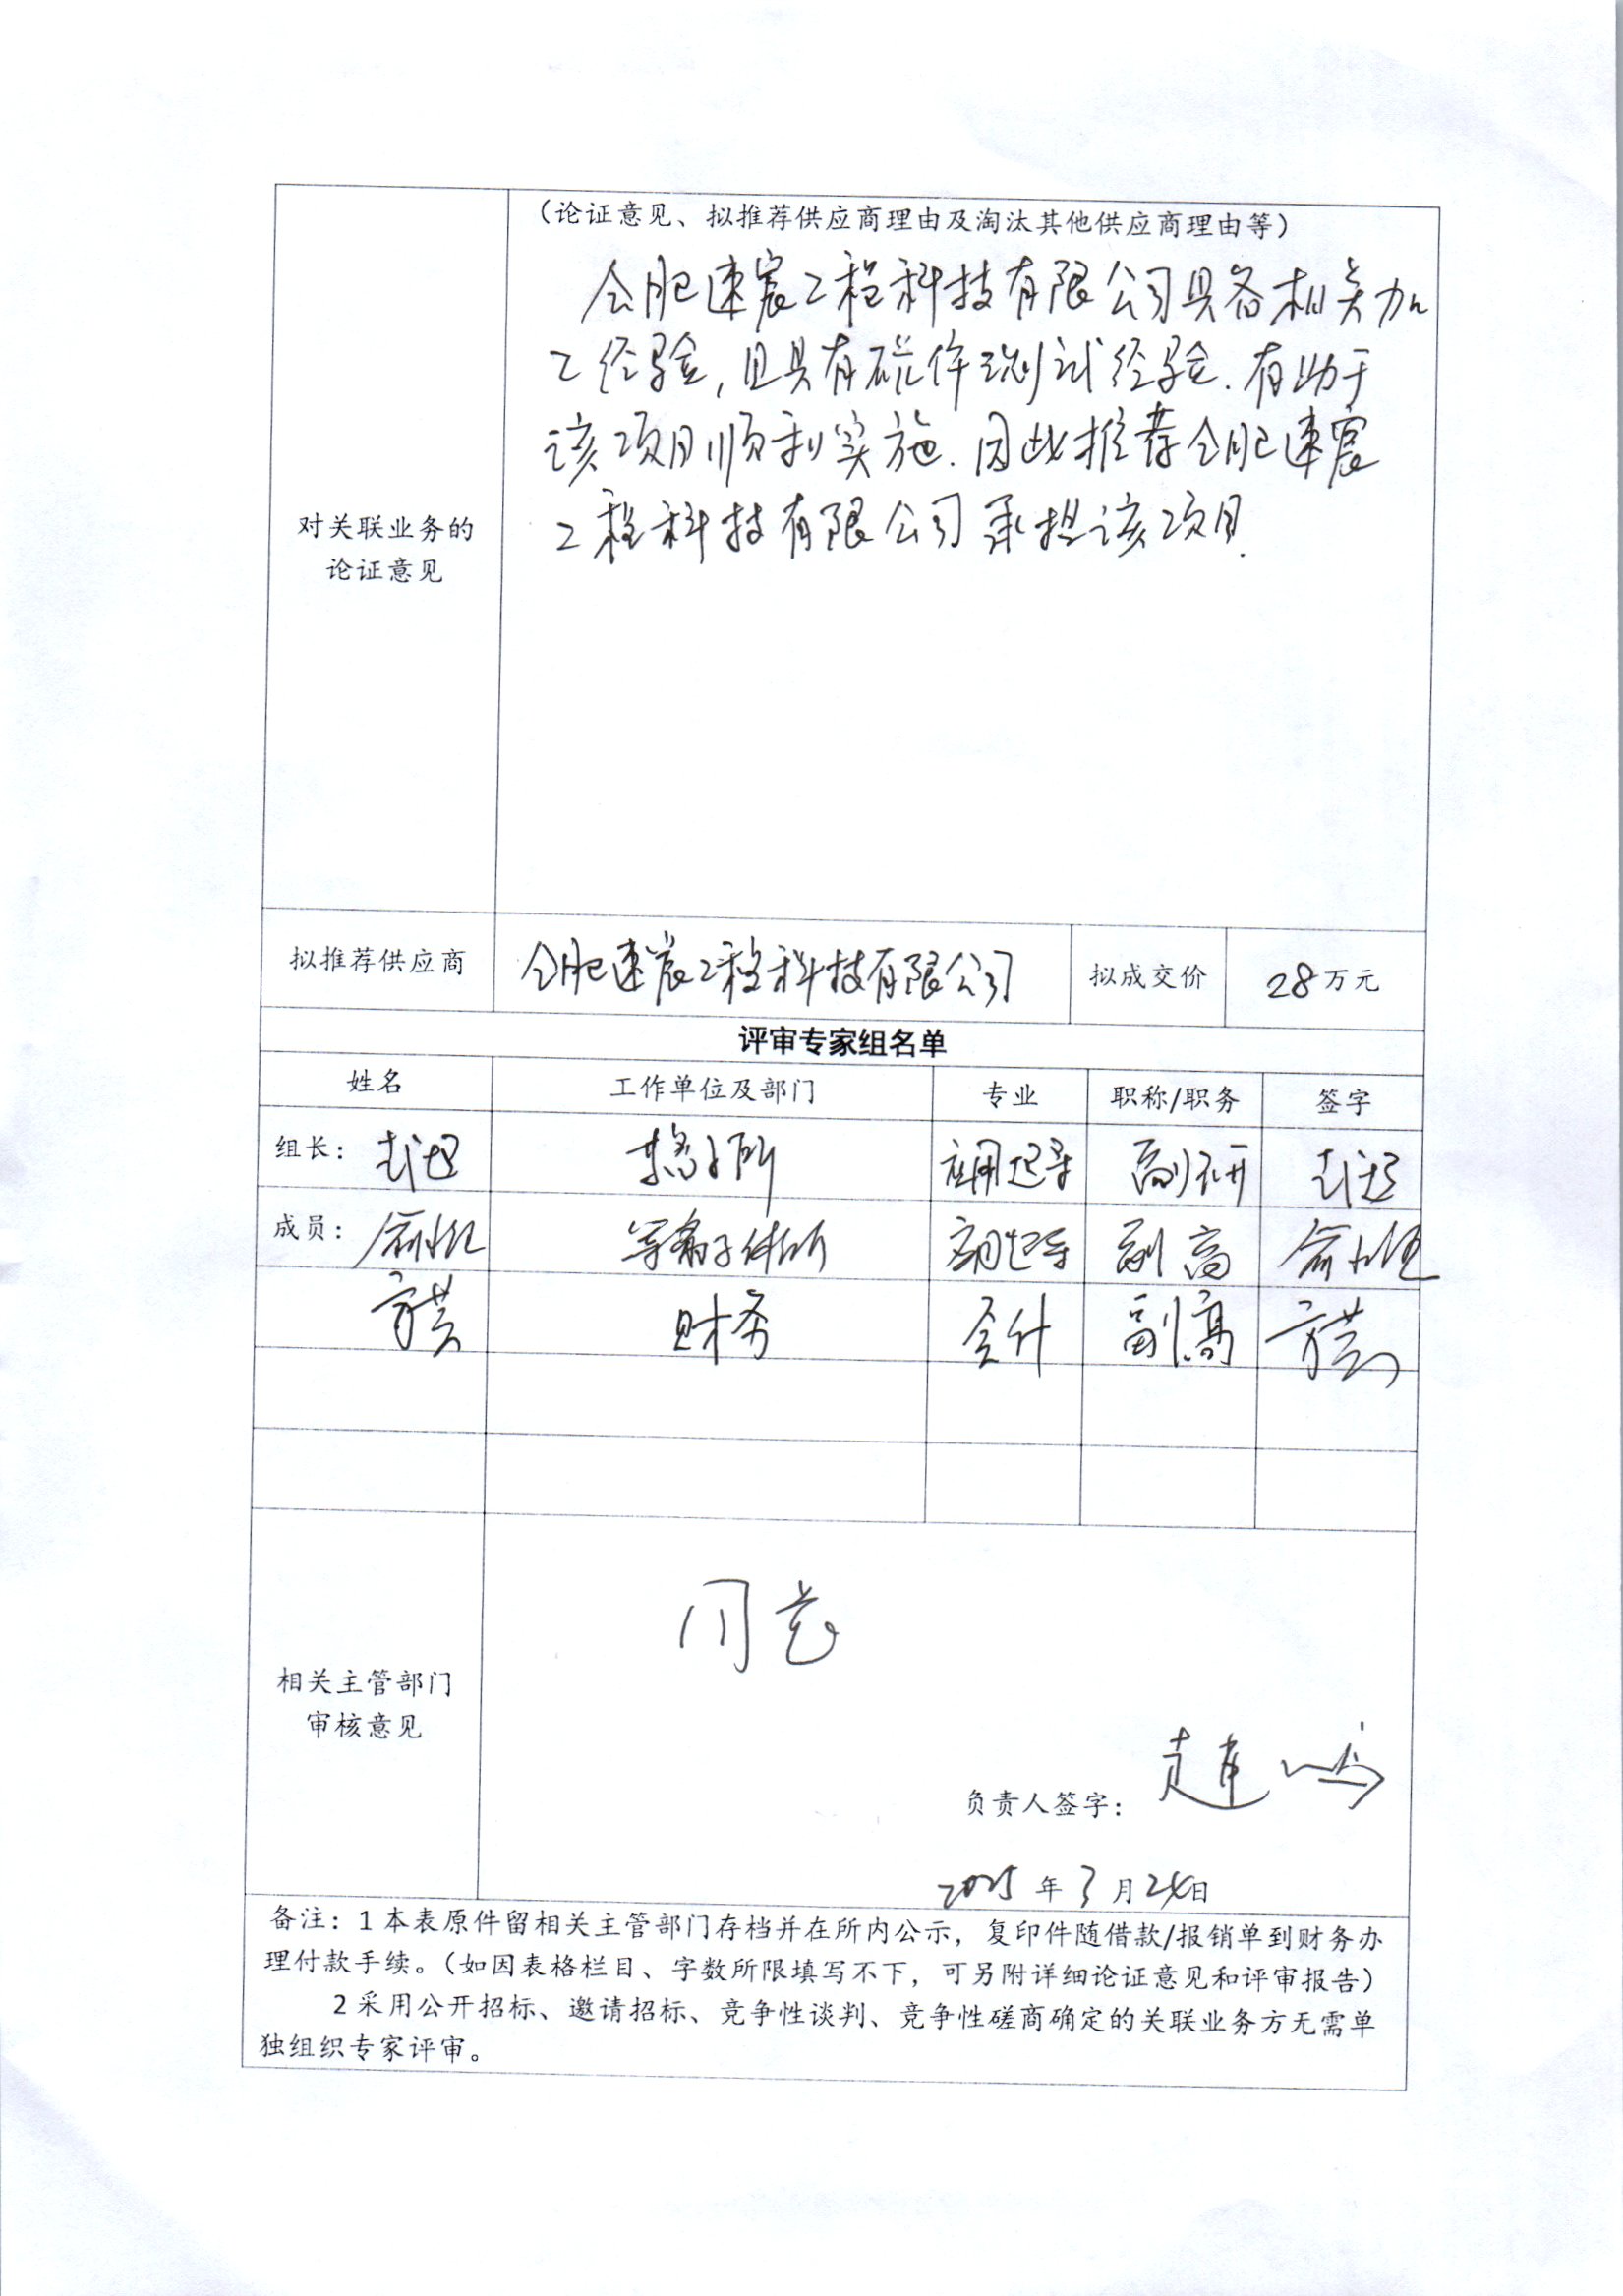 （论证意见、拟推荐供应商理由及淘汰其他供应商理由等）
合肥速宸工程科技有限公司具备相关加
工经验,且具有磁体测试经验.有助于
该项目顺利实施.因此推荐合肥速宸
工程科技有限公司承担该项目.
对关联业务的
论证意见
拟推荐供应商 合肥速宸工程科技有限公司 拟成交价 28万元
评审专家组名单
姓名 工作单位及部门 专业 职称/职务 签字
组长： 应用超导 副研
成员： 等离子体所 应用超导 副高
财务 会计 副高
同意
相关主管部门
审核意见
负责人签字：
2025年3月24日
备注：1 本表原件留相关主管部门存档并在所内公示，复印件随借款/报销单到财务办
理付款手续。（如因表格栏目、字数所限填写不下，可另附详细论证意见和评审报告）
2 采用公开招标、邀请招标、竞争性谈判、竞争性磋商确定的关联业务方无需单
独组织专家评审。